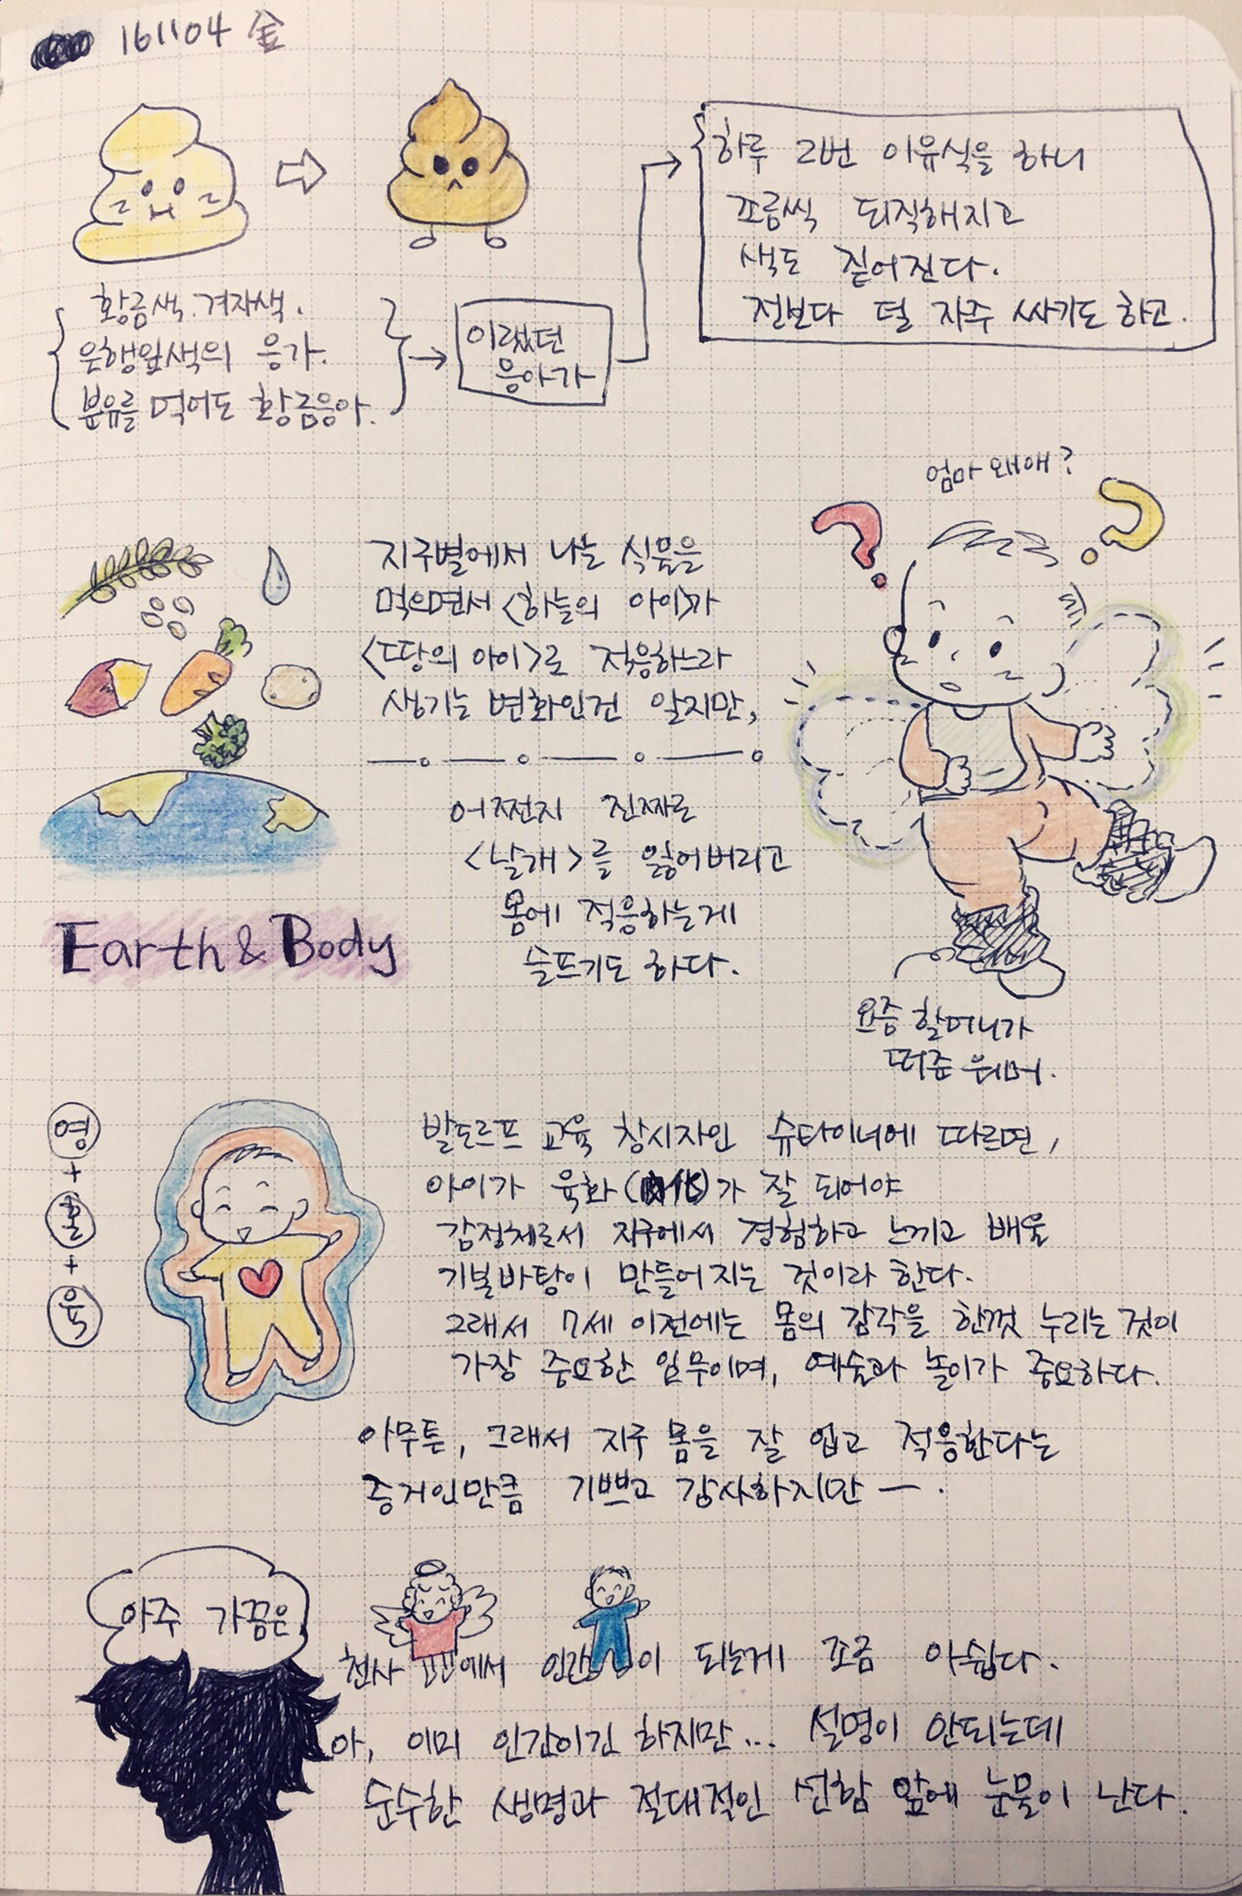 161104 金
황금색. 겨자색.
은행잎색의 응가.
분유를 먹어도 황금응아.
이랬던
응아가
하루 2번 이유식을 하니
조금씩 되직해지고
색도 짙어진다.
전보다 덜 자주 싸기도 하고.
엄마 왜애?
지구별에서 나는 식물을
먹으면서 <하늘의 아이>가
<땅의 아이>로 적응하느라
생기는 변화인건 알지만,
어쩐지 진짜로
<날개>를 잃어버리고
몸에 적응하는게
슬프기도 하다.
Earth & Body
요즘 할머니가
떠준 워머.
영
+
혼
+
육
발도르프 교육 창시자인 슈타이너에 따르면,
아이가 육화(肉化)가 잘 되어야
감정체로서 지구에서 경험하고 느끼고 배울
기본바탕이 만들어지는 것이라 한다.
그래서 7세 이전에는 몸의 감각을 한껏 누리는 것이
가장 중요한 임무이며, 예술과 놀이가 중요하다.
아무튼, 그래서 지구 몸을 잘 입고 적응한다는
증거인만큼 기쁘고 감사하지만 — .
아주 가끔은,
천사 에서 인간 이 되는게 조금 아쉽다.
아, 이미 인간이긴 하지만... 설명이 안되는데
순수한 생명과 절대적인 선함 앞에 눈물이 난다.